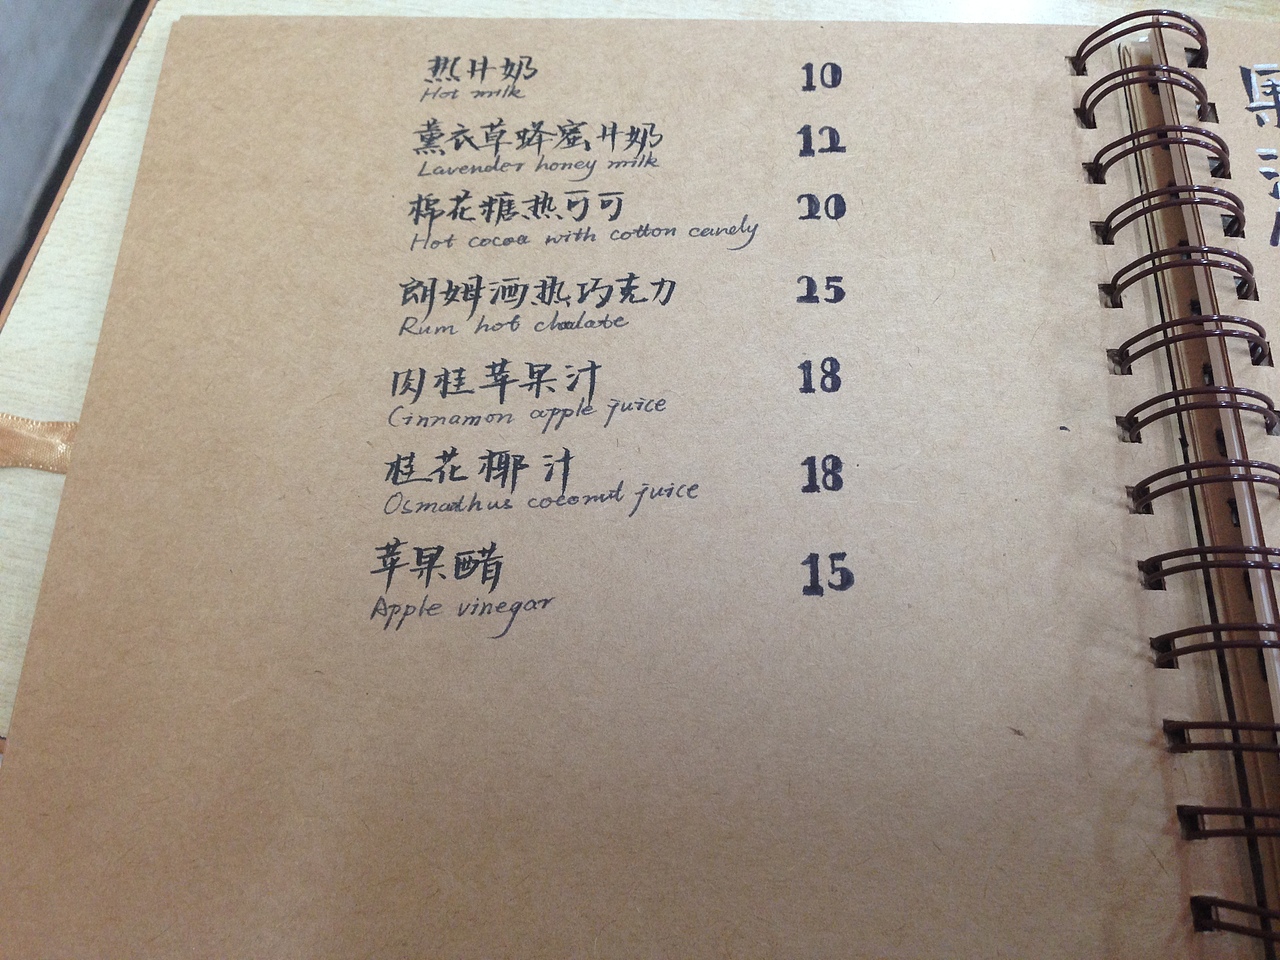 热牛奶 10
Hot milk
薰衣草蜂蜜牛奶 12
Lavender honey milk
棉花糖热可可 20
Hot cocoa with cotton candy
朗姆酒热巧克力 25
Rum hot chocolate
肉桂苹果汁 18
Cinnamon apple juice
桂花椰汁 18
Osmanthus coconut juice
苹果醋 15
Apple vinegar